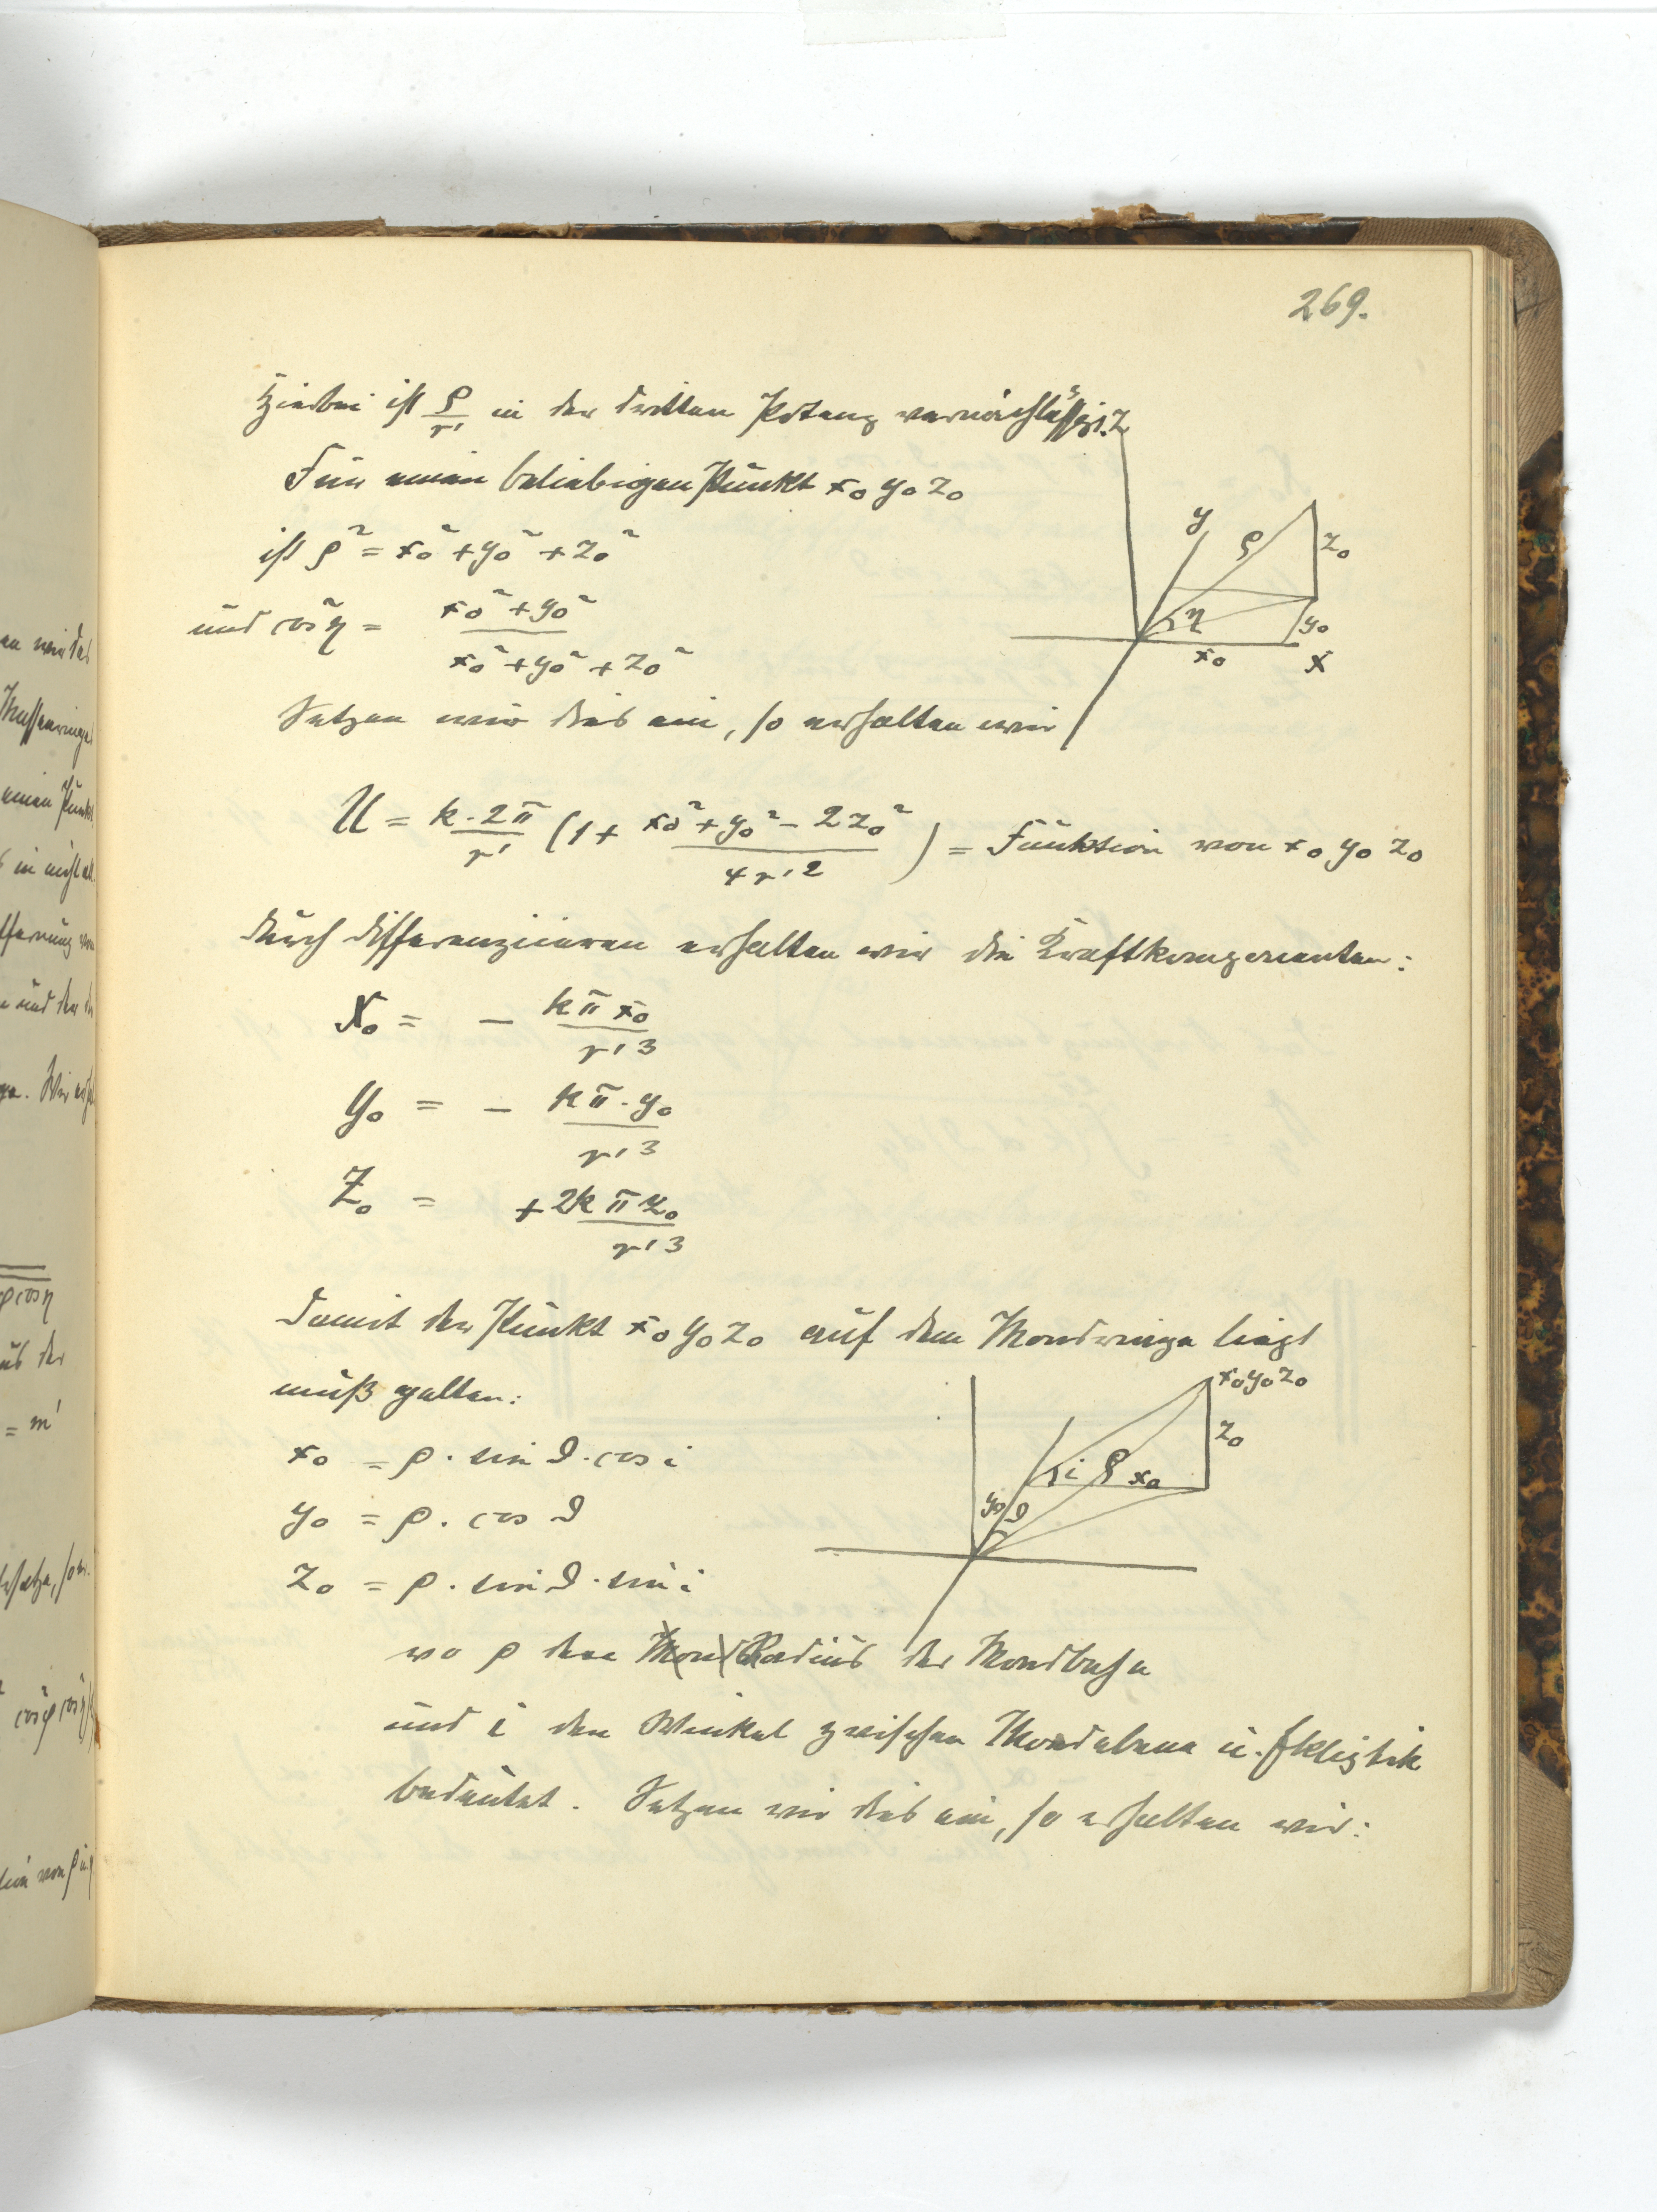 269.
Hierbei ist ρ/r' in der dritten Potenz vernachlässigt.
Für einen beliebigen Punkt x₀ y₀ z₀
ist ρ² = x₀² + y₀² + z₀²
und cos²η = (x₀² + y₀²) / (x₀² + y₀² + z₀²)
Z
y
ρ
z₀
η
y₀
x₀
X
Setzen wir dies ein, so erhalten wir
U = k·2π/r' (1 + (x₀² + y₀² − 2z₀²)/(4r'²)) = Funktion von x₀ y₀ z₀
Durch Differenzieren erhalten wir die Kraftkomponenten:
X₀ = − kπx₀/r'³
Y₀ = − kπ·y₀/r'³
Z₀ = + 2kπz₀/r'³
Damit der Punkt x₀ y₀ z₀ auf dem Mondringe liegt
muß gelten:
x₀ = ρ · sin ϑ · cos i
y₀ = ρ · cos ϑ
z₀ = ρ · sin ϑ · sin i
x₀y₀z₀
z₀
i
ρ
x₀
y₀
ϑ
wo ρ den Mond Radius der Mondbahn
und i den Winkel zwischen Mondebene u. Ekliptik
bedeutet. Setzen wir dies ein, so erhalten wir: